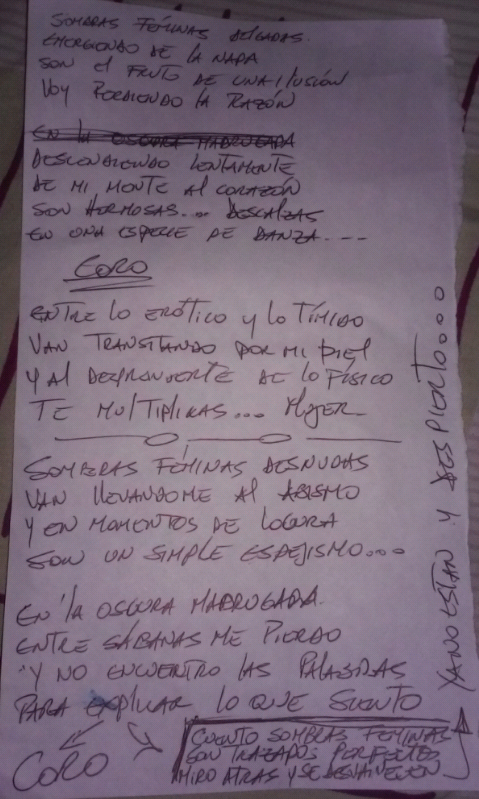 SOMBRAS FÉMINAS DELGADAS
EMERGIENDO DE LA NADA
SON EL FRUTO DE UNA ILUSIÓN
VOY PERDIENDO LA RAZÓN
EN LA OSCURA MADRUGADA
DESCENDIENDO LENTAMENTE
DE MI MENTE AL CORAZÓN
SON HERMOSAS... DESCALZAS
EN UNA ESPECIE DE DANZA....
CORO
ENTRE LO ERÓTICO Y LO TÍMIDO
VAN TRANSITANDO POR MI PIEL
Y AL DESPRENDERTE DE LO FÍSICO
TE MULTIPLICAS... MUJER
SOMBRAS FÉMINAS DESNUDAS
VAN LLEVANDOME AL ABISMO
Y EN MOMENTOS DE LOCURA
SON UN SIMPLE ESPEJISMO...
EN LA OSCURA MADRUGADA
ENTRE SÁBANAS ME PIERDO
Y NO ENCUENTRO LAS PALABRAS
PARA EXPLICAR LO QUE SIENTO
CORO
CUENTO SOMBRAS FEMINAS
SON TRAZADOS PERFECTOS
MIRO ATRAS Y SE DESVANECEN
YA NO ESTAN Y DESPIERTO...